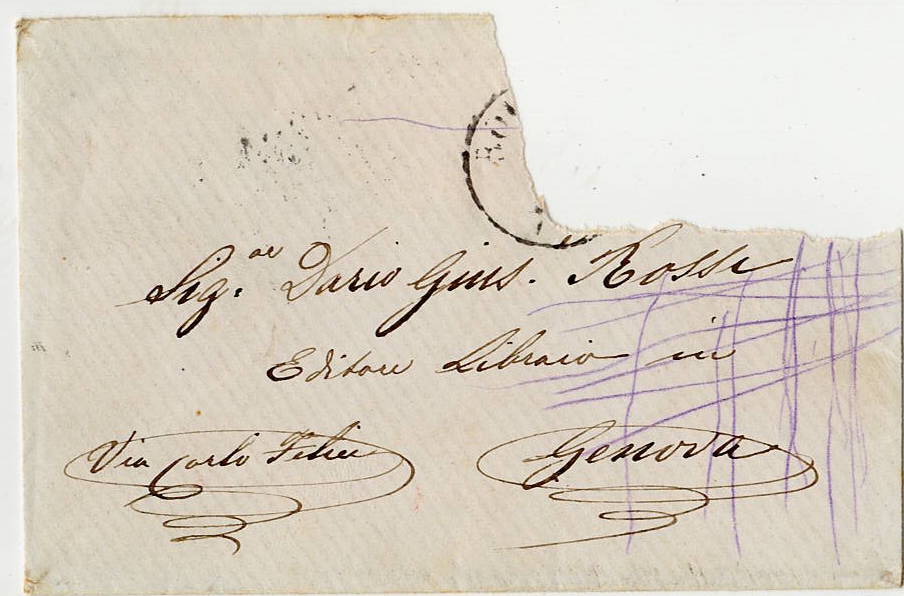 Sig.re Dario Gius. Rossi
Editore Libraio in
Via Carlo Felice
Genova